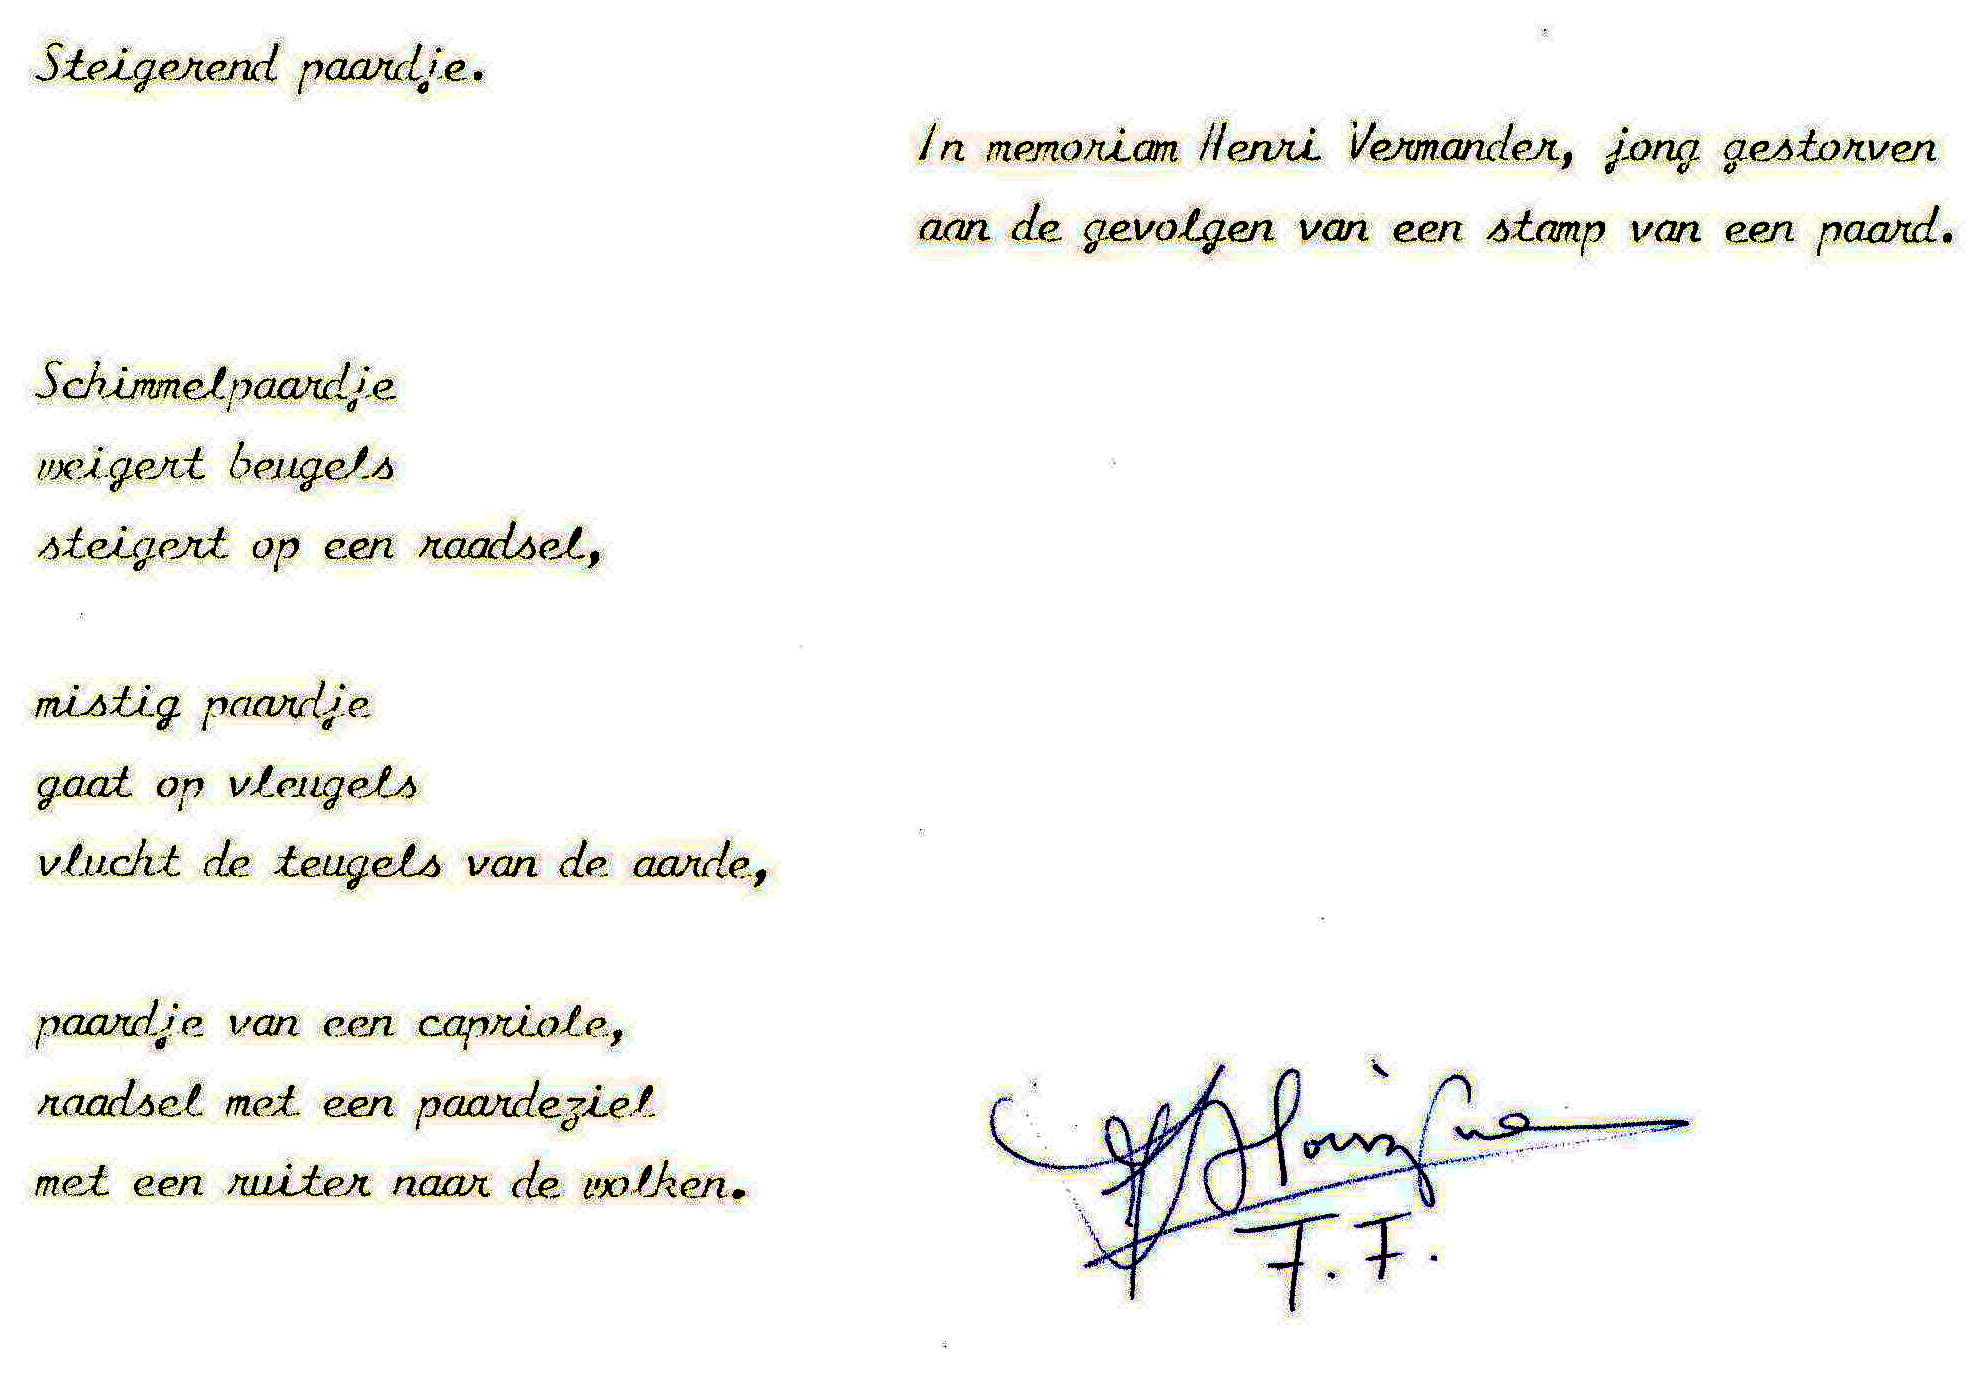 Steigerend paardje.
In memoriam Henri Vermander, jong gestorven
aan de gevolgen van een stamp van een paard.
Schimmelpaardje
weigert beugels
steigert op een raadsel,
mistig paardje
gaat op vleugels
vlucht de teugels van de aarde,
paardje van een capriole,
raadsel met een paardeziel
met een ruiter naar de wolken.
F.F.